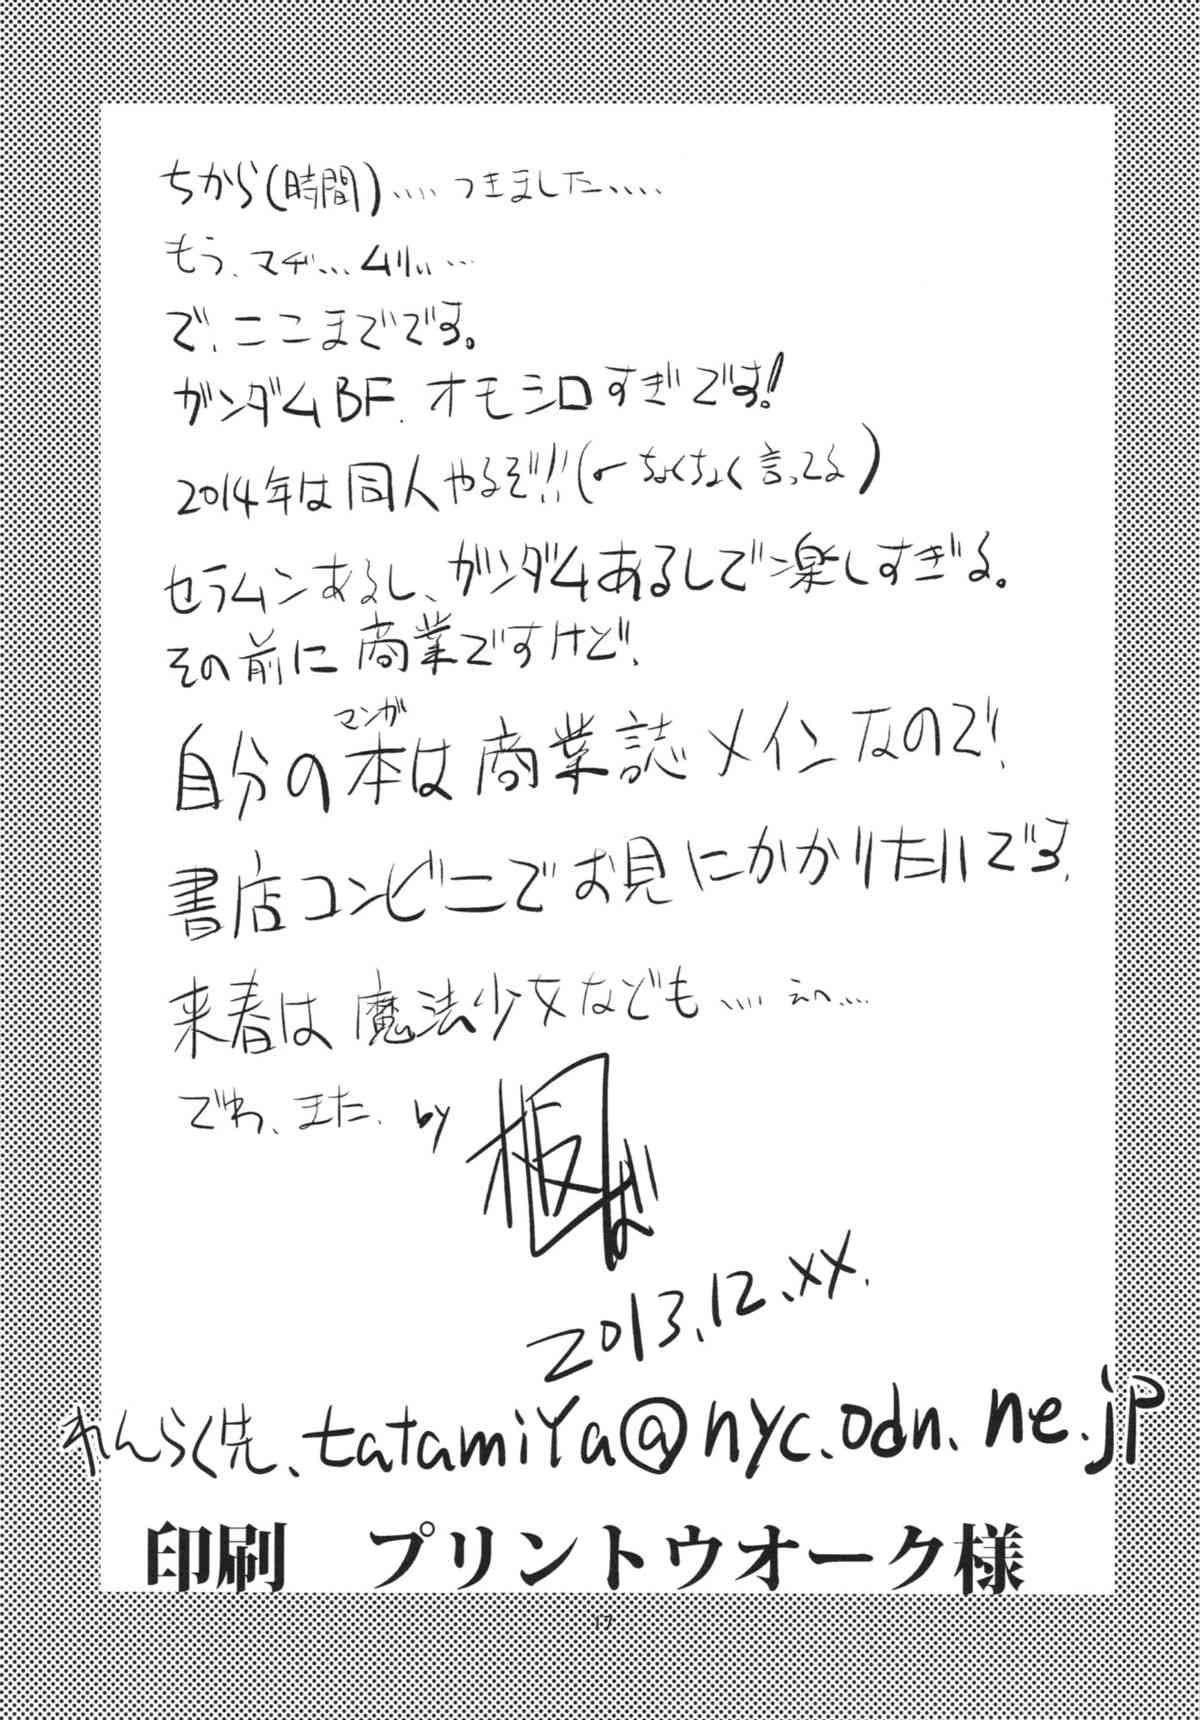 ちから(時間)‥‥つきました‥‥
もう、マヂ‥‥ムリ‥‥
で、ここまでです。
ガンダムBF、オモシロすぎです!
2014年は同人やるぞ!!(←ちょくちょく言ってる)
セラムンあるし、ガンダムあるしで楽しすぎる。
その前に商業ですけど!
マンガ
自分の本は商業誌メインなので!
書店コンビニでお見にかかりたいです。
来春は魔法少女なども‥‥えへ‥‥
でわ、また、by
2013.12.XX.
れんらく先、tatamiYa@nyc.odn.ne.jp
印刷 プリントウオーク様
17